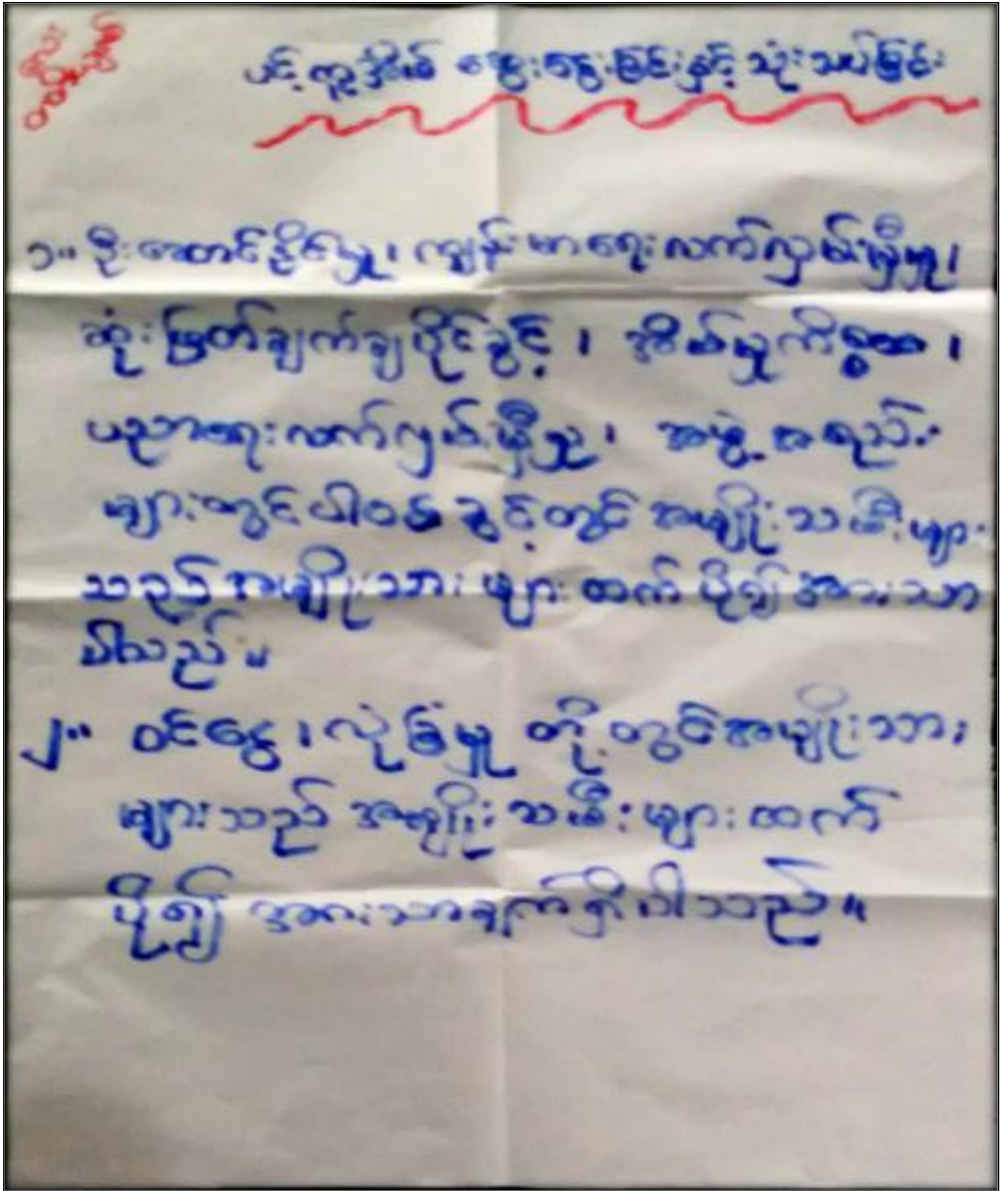 ပင့်ကူအိမ် ဆွေးနွေးခြင်းနှင့် သုံးသပ်ခြင်း
၁။ ဦးဆောင်နိုင်မှု၊ ကျန်းမာရေးလက်လှမ်းမှီမှု၊
ဆုံးဖြတ်ချက်ချပိုင်ခွင့်၊ အိမ်မှုကိစ္စ၊
ပညာရေးလက်လှမ်းမှီမှု၊ အဖွဲ့အစည်း
များတွင်ပါဝင်ခွင့်တွင် အမျိုးသမီးများ
သည် အမျိုးသားများထက် ပို၍ အားသာ
ပါသည်။
၂။ ဝင်ငွေ၊ လုံခြုံမှု တို့တွင်အမျိုးသား
များသည် အမျိုးသမီးများထက်
ပို၍ အားသာချက်ရှိပါသည်။